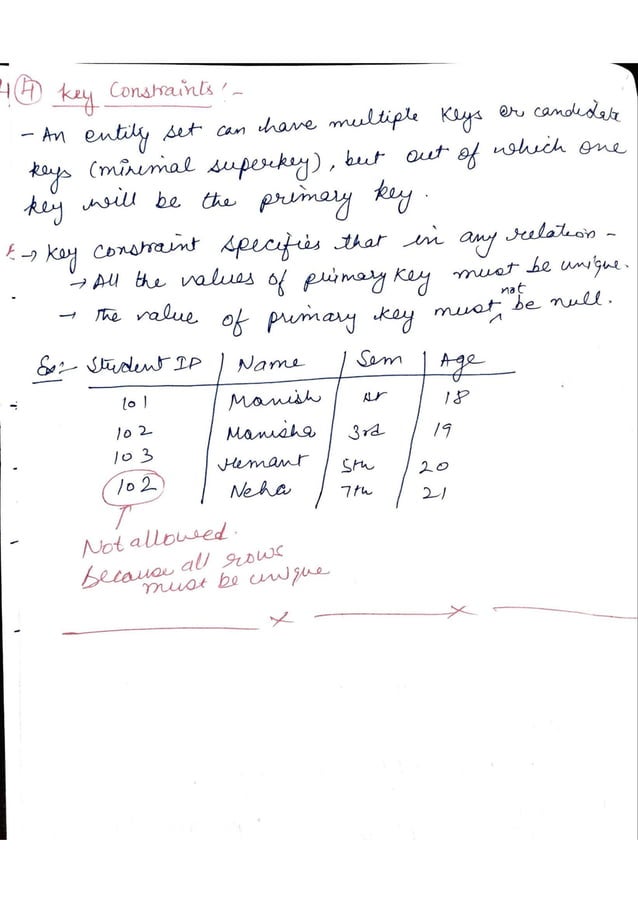 4 Key Constraints :-
- An entity set can have multiple keys or candidate
keys (minimal superkey), but out of which one
key will be the primary key.
→ Key constraint specifies that in any relation -
→ All the values of primary key must be unique.
→ The value of primary key must not be null.
Ex:- Student ID | Name | Sem | Age
101 Manish 18
102 Manisha 3rd 19
103 Hemant 5th 20
102 Neha 7th 21
Not allowed.
because all rows
must be unique